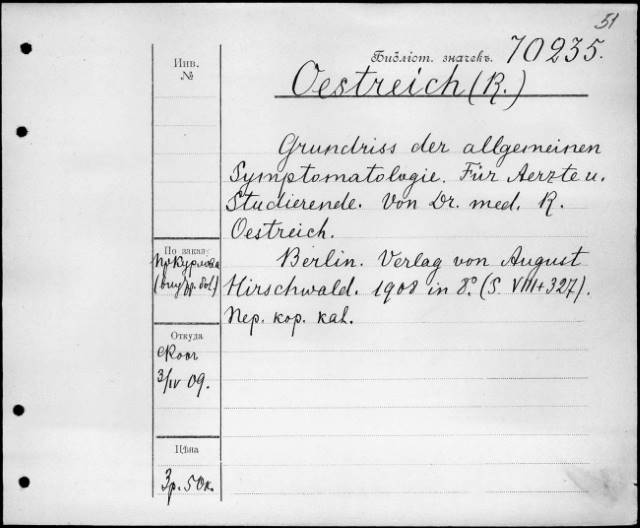 51
Библіот. значекъ. 70235.
Oestreich (R.)
Grundriss der allgemeinen
Symptomatologie. Für Aerzte u.
Studierende. Von Dr. med. R.
Oestreich.
Berlin. Verlag von August
Hirschwald. 1908 in 8.° (S. VIII+327).
Пер. кор. кал.
Инв.
№
По заказу
Пр Курлова
Откуда
3/IV 09.
Цѣна
3р. 50к.